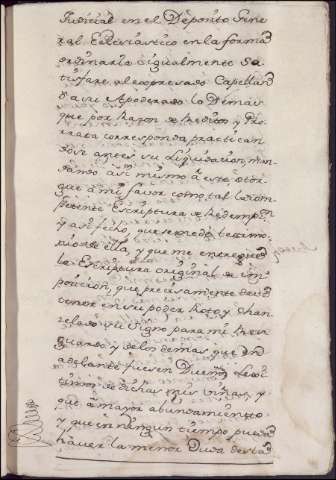 Judicial en el Deposito Gene
ral Eclesiastico en la forma
ordinaria è igualmente Sa
tisfare al expresado Capellan
ò a su Apoderado lo Demas
que por Razon de Reditos y Pro
rrata corresponda, practican
dose antes su Liquidacion, man
dando asi mismo a este otor
gue a mi favor como tal la com
petente Escriptura de Redempn
y asi fecho, que se me dè testimo
nio de ella, y que me entregue
la Escriptura original de im
posicion, que precisamente deve
tener en su poder Rota, y Chan
zelada
y de los demas que en
adelante fuesen Dueños
de dichas mis viñas, y
que à mayor abundamiento
y que en ningun tiempo pueda
haver la menor Duda